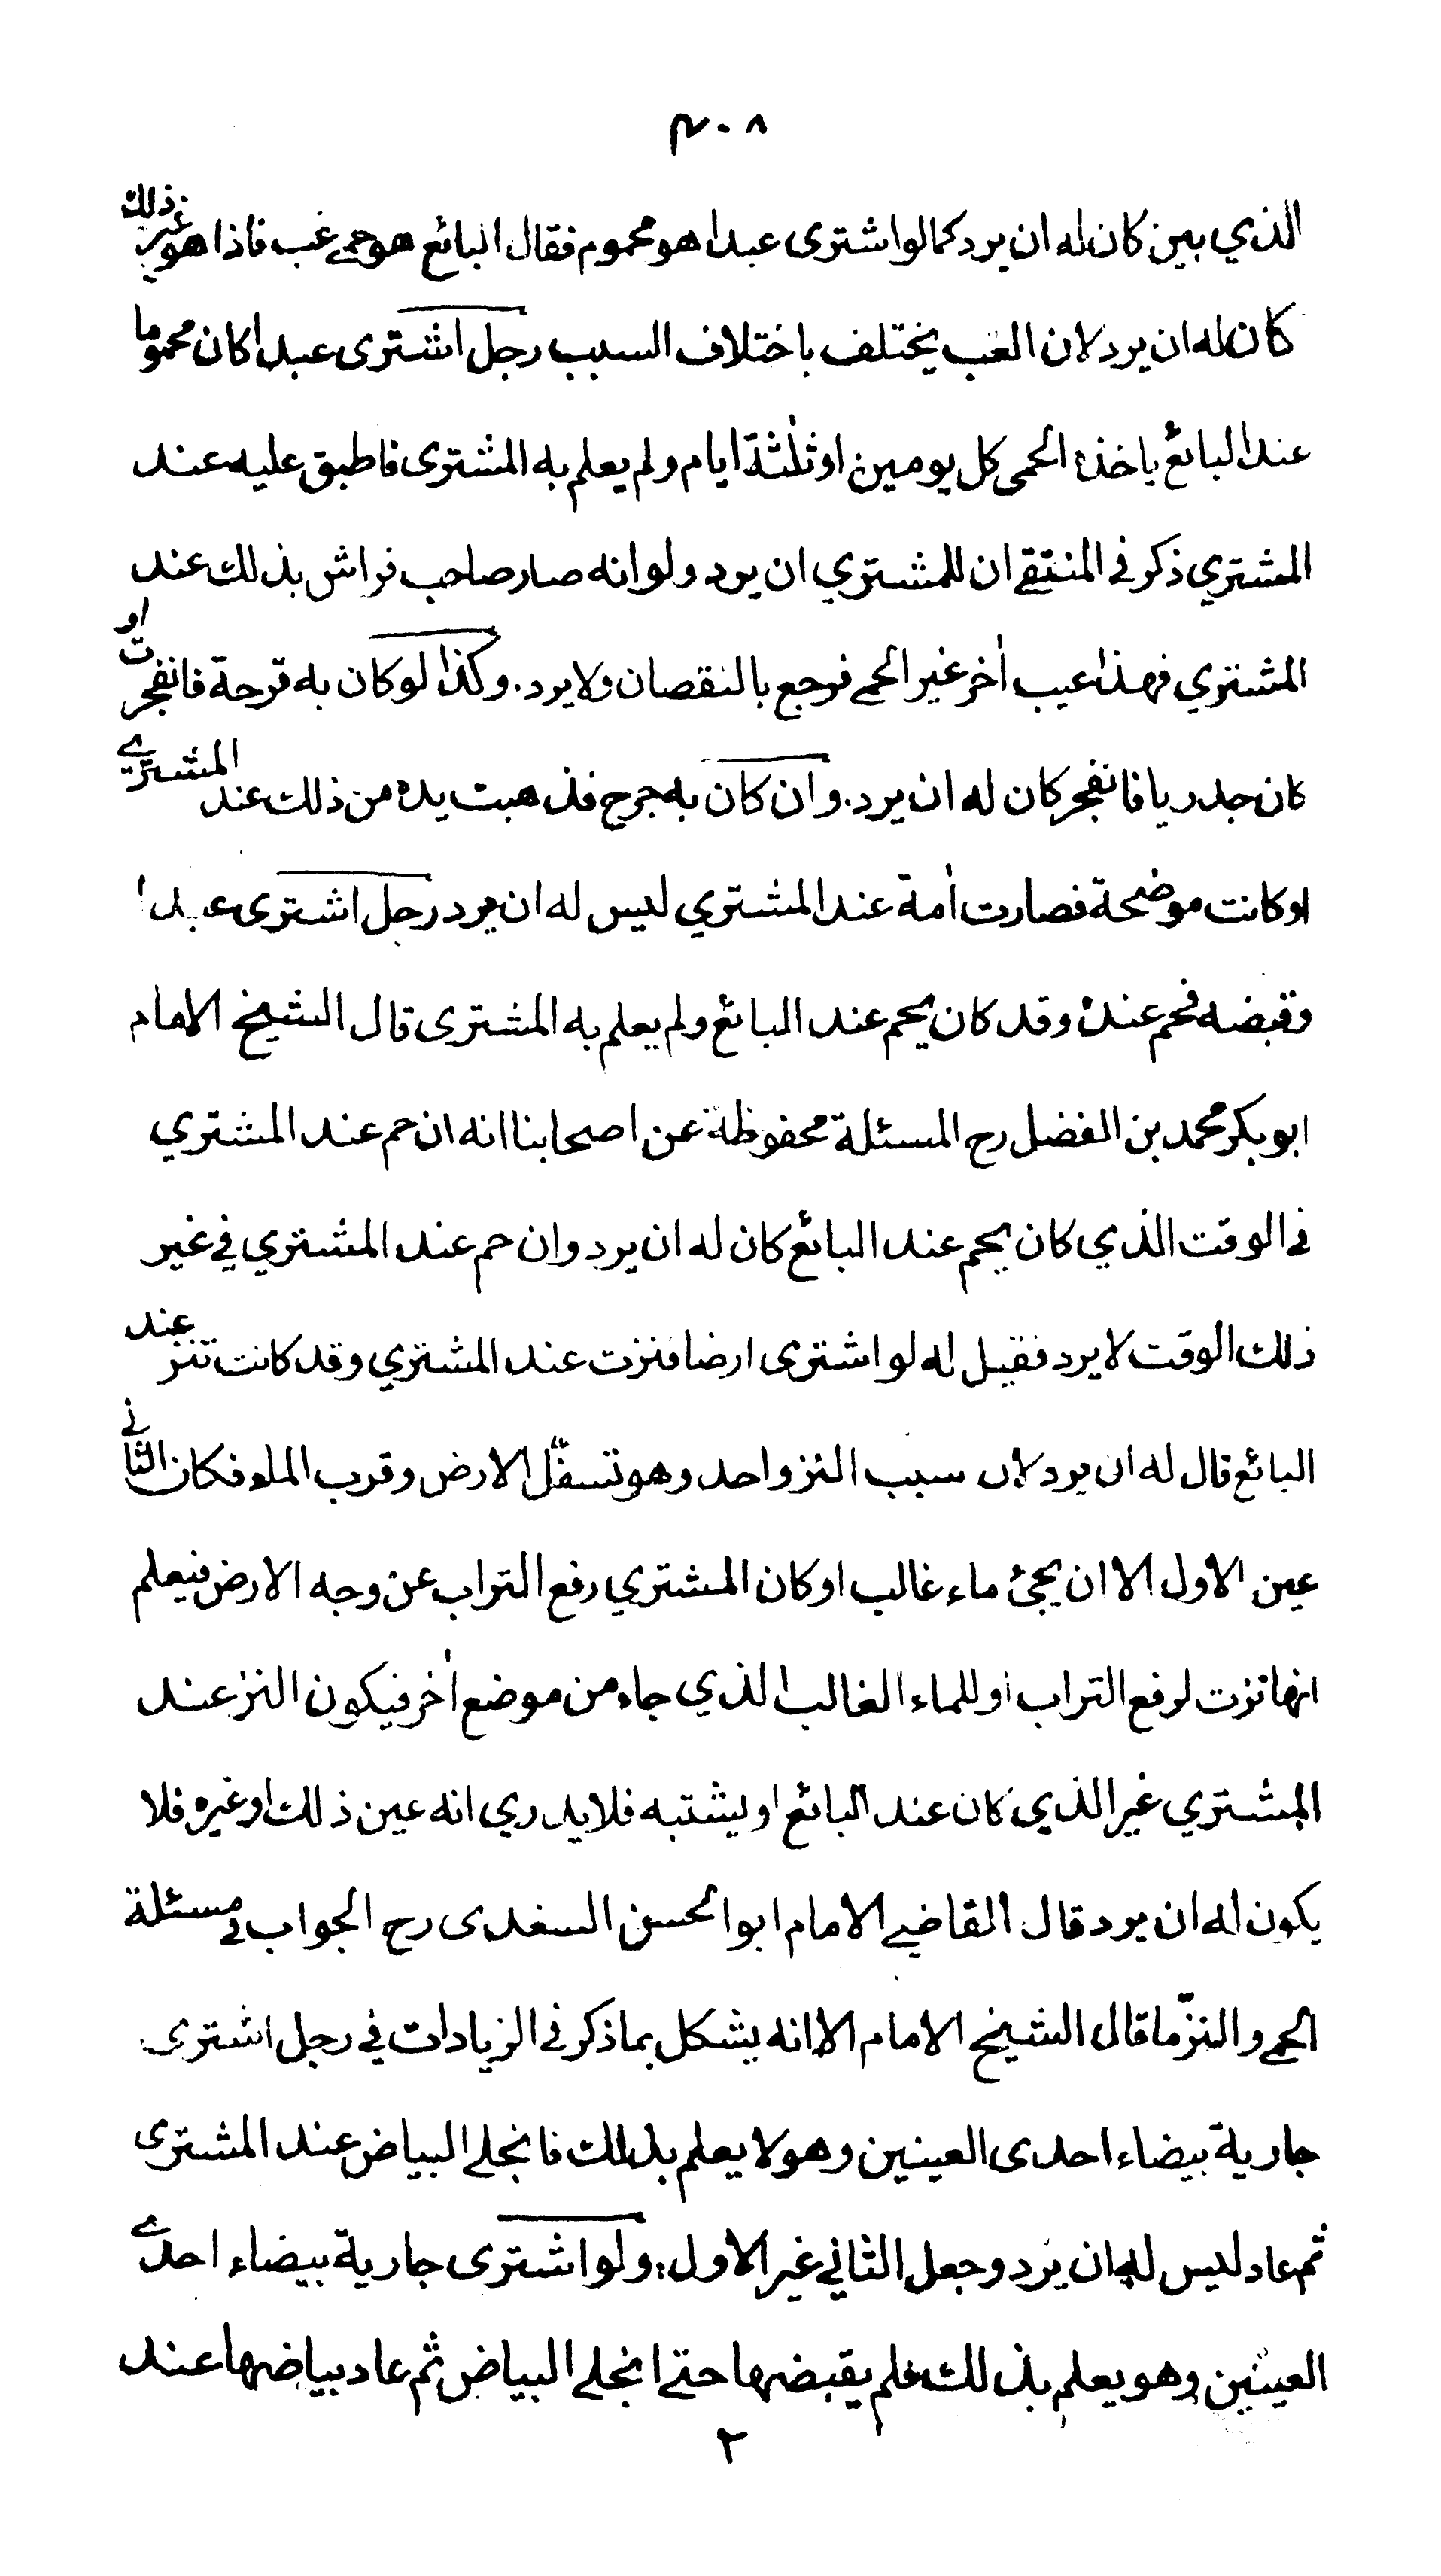 ٣٠٨
الذي بين كان له ان يرد كما لو اشترى عبدا هو محموم فقال البائع هو حمى غب فاذا هو غير ذلك
كان له ان يرد لان الغب يختلف باختلاف السبب رجل اشترى عبدا كان محموما
عند البائع ياخذه الحمى كل يومين او ثلثة ايام ولم يعلم به المشترى فاطبق عليه عند
المشتري ذكر في المنتقى ان للمشتري ان يرد ولو انه صار صاحب فراش بذلك عند
المشتري فهذا عيب اٰخر غير الحمى فرجع بالنقصان ولا يرد. وكذا لو كان به قرحة فانفجرت او
كان جدريا فانفجر كان له ان يرد. وان كان به جرح فذهبت يده من ذلك عند المشتري
او كانت موضحة فصارت اٰمة عند المشتري ليس له ان يرد رجل اشترى عبدا
وقبضه فحم عنده وقد كان يحم عند البائع ولم يعلم به المشترى قال الشيخ الامام
ابو بكر محمد بن الفضل رح المسئلة محفوظة عن اصحابنا انه ان حم عند المشتري
في الوقت الذي كان يحم عند البائع كان له ان يرد وان حم عند المشتري في غير
ذلك الوقت لا يرد فقيل له لو اشترى ارضا فنزت عند المشتري وقد كانت تنز عند
البائع قال له ان يرد لان سبب النز واحد وهو تسفّل الارض وقرب الماء فكان الثاني
عين الاول الا ان يجئ ماء غالب او كان المشتري رفع التراب عن وجه الارض فيعلم
انها نزت لرفع التراب او للماء الغالب الذي جاء من موضع اٰخر فيكون النز عند
المشتري غير الذي كان عند البائع او يشتبه فلا يدري انه عين ذلك او غيره فلا
يكون له ان يرد قال القاضي الامام ابو الحسن السغدى رح الجواب في مسئلة
الحمى والنزّ ما قال الشيخ الامام الا انه يشكل بما ذكر في الزيادات في رجل اشترى
جارية بيضاء احدى العينين وهو لا يعلم بذلك فانجلى البياض عند المشترى
ثم عاد ليس له ان يرد وجعل الثاني غير الاول: ولو اشترى جارية بيضاء احدى
العينين وهو يعلم بذلك فلم يقبضها حتى انجلى البياض ثم عاد بياضها عند
٢